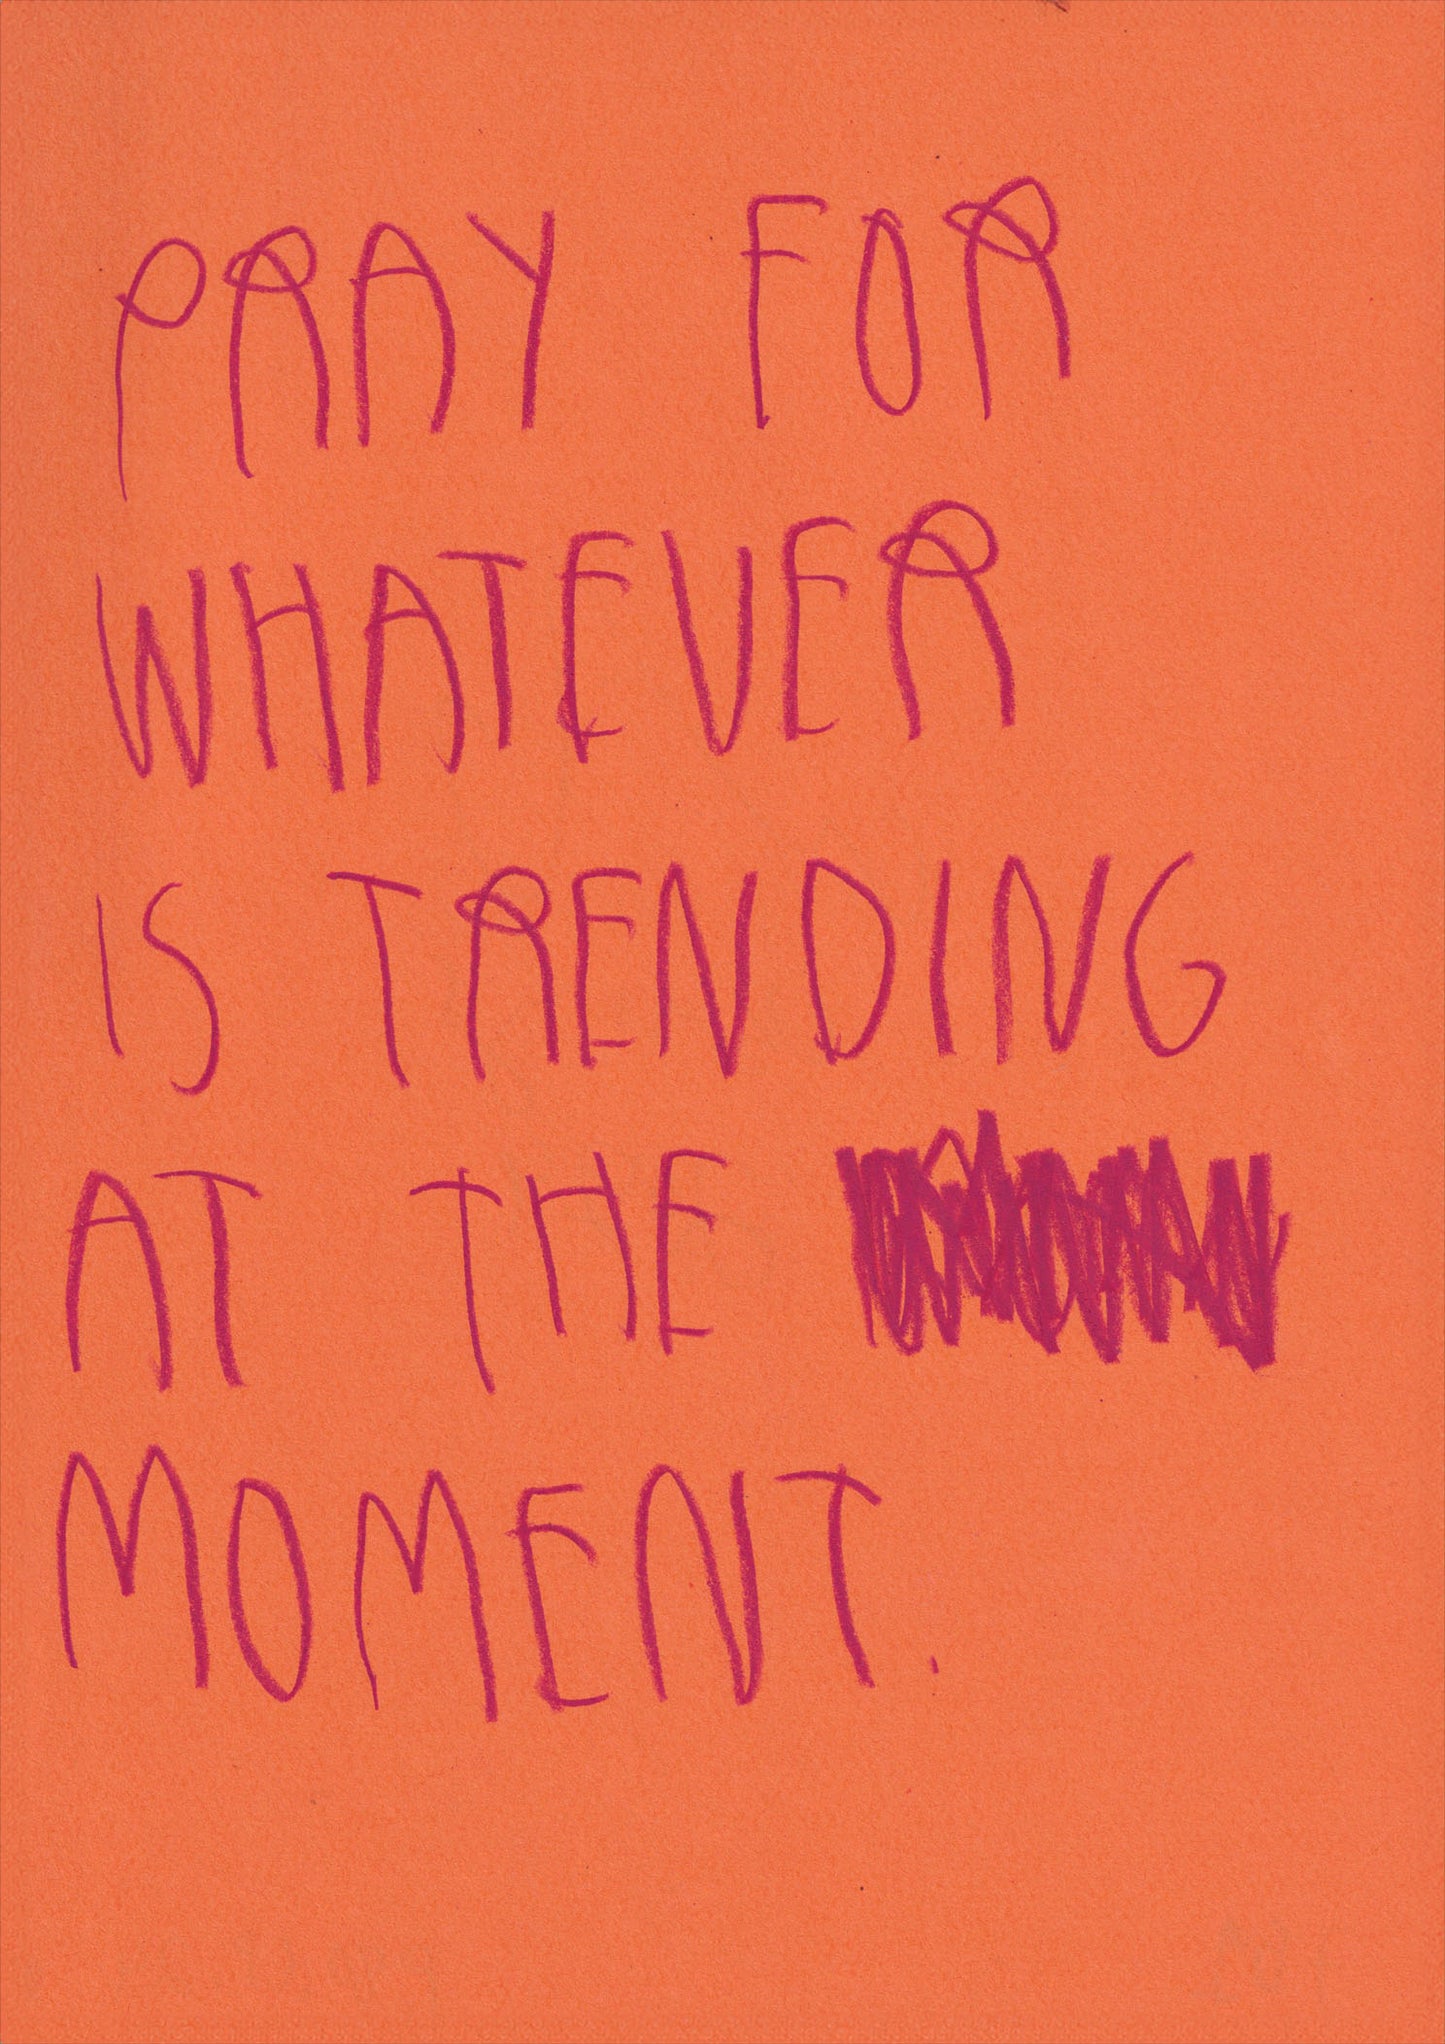 PRAY FOR
WHATEVER
IS TRENDING
AT THE
MOMENT.